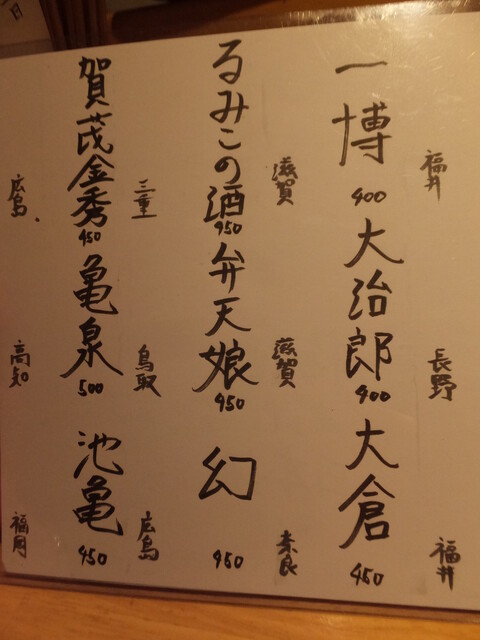 福井
長野
福井
一博 400
滋賀
大治郎 400
滋賀
大倉 450
奈良
るみこの酒 450
三重
弁天娘 450
鳥取
幻 450
広島
賀茂金秀 450
広島
亀泉 500
高知
池亀 450
福岡